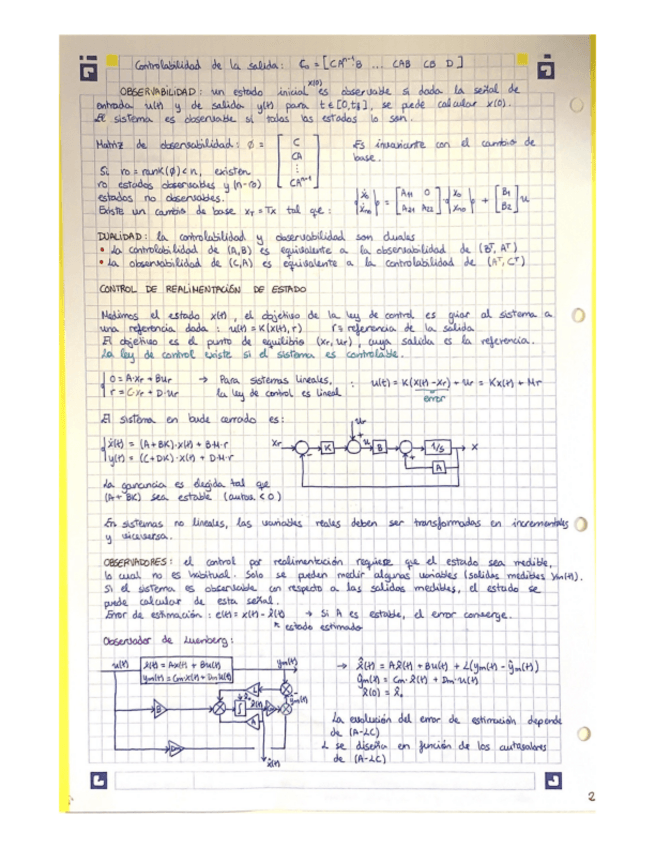 Controlabilidad de la salida: Co = [CAⁿ⁻¹B ... CAB CB D]
OBSERVABILIDAD: un estado inicial x(0) es observable si dada la señal de
entrada u(t) y de salida y(t) para t ∈ [0,tf], se puede calcular x(0).
El sistema es observable si todos los estados lo son.
Matriz de observabilidad: Φ = [C CA ⋮ CAⁿ⁻¹]
Es invariante con el cambio de
base.
Si ro = rank(Φ) < n, existen
ro estados observables y (n-ro)
estados no observables.
Existe un cambio de base xT = Tx tal que:
[ẋo ẋno] = [A11 0 A21 A22] [xo xno] + [B1 B2] u
DUALIDAD: la controlabilidad y observabilidad son duales
• La controlabilidad de (A,B) es equivalente a la observabilidad de (Bᵀ, Aᵀ)
• La observabilidad de (C,A) es equivalente a la controlabilidad de (Aᵀ, Cᵀ)
CONTROL DE REALIMENTACIÓN DE ESTADO
Medimos el estado x(t), el objetivo de la ley de control es guiar al sistema a
una referencia dada: u(t) = K(x(t), r) r ≡ referencia de la salida
El objetivo es el punto de equilibrio (xr, ur), cuya salida es la referencia.
La ley de control existe si el sistema es controlable.
0 = A·xr + Bur → Para sistemas lineales, : u(t) = K(x(t) - xr) + ur = Kx(t) + Mr
r = C·xr + D·ur la ley de control es lineal error
El sistema en bucle cerrado es:
ẋ(t) = (A+BK)·x(t) + B·M·r
y(t) = (C+DK)·x(t) + D·M·r
xr K ur u B 1/s x
A
La ganancia es elegida tal que
(A+BK) sea estable (autov. < 0)
En sistemas no lineales, las variables reales deben ser transformadas en incrementales
y viceversa.
OBSERVADORES: el control por realimentación requiere que el estado sea medible,
lo cual no es habitual. Solo se pueden medir algunas variables (salidas medibles ym(t)).
Si el sistema es observable con respecto a las salidas medibles, el estado se
puede calcular de esta señal.
Error de estimación: e(t) = x(t) - x̂(t) → Si A es estable, el error converge.
estado estimado
Observador de Luenberg:
u(t) ẋ(t) = Ax(t) + Bu(t) ym(t)
ym(t) = Cm·x(t) + Dm·u(t)
L
B ∫ x̂(t) ŷm(t)
A
x̂(t)
→ x̂(t) = Ax̂(t) + Bu(t) + L(ym(t) - ŷm(t))
ŷm(t) = Cm·x̂(t) + Dm·u(t)
x̂(0) = x̂o
La evolución del error de estimación depende
de (A-LC)
L se diseña en función de los autovalores
de (A-LC)
2